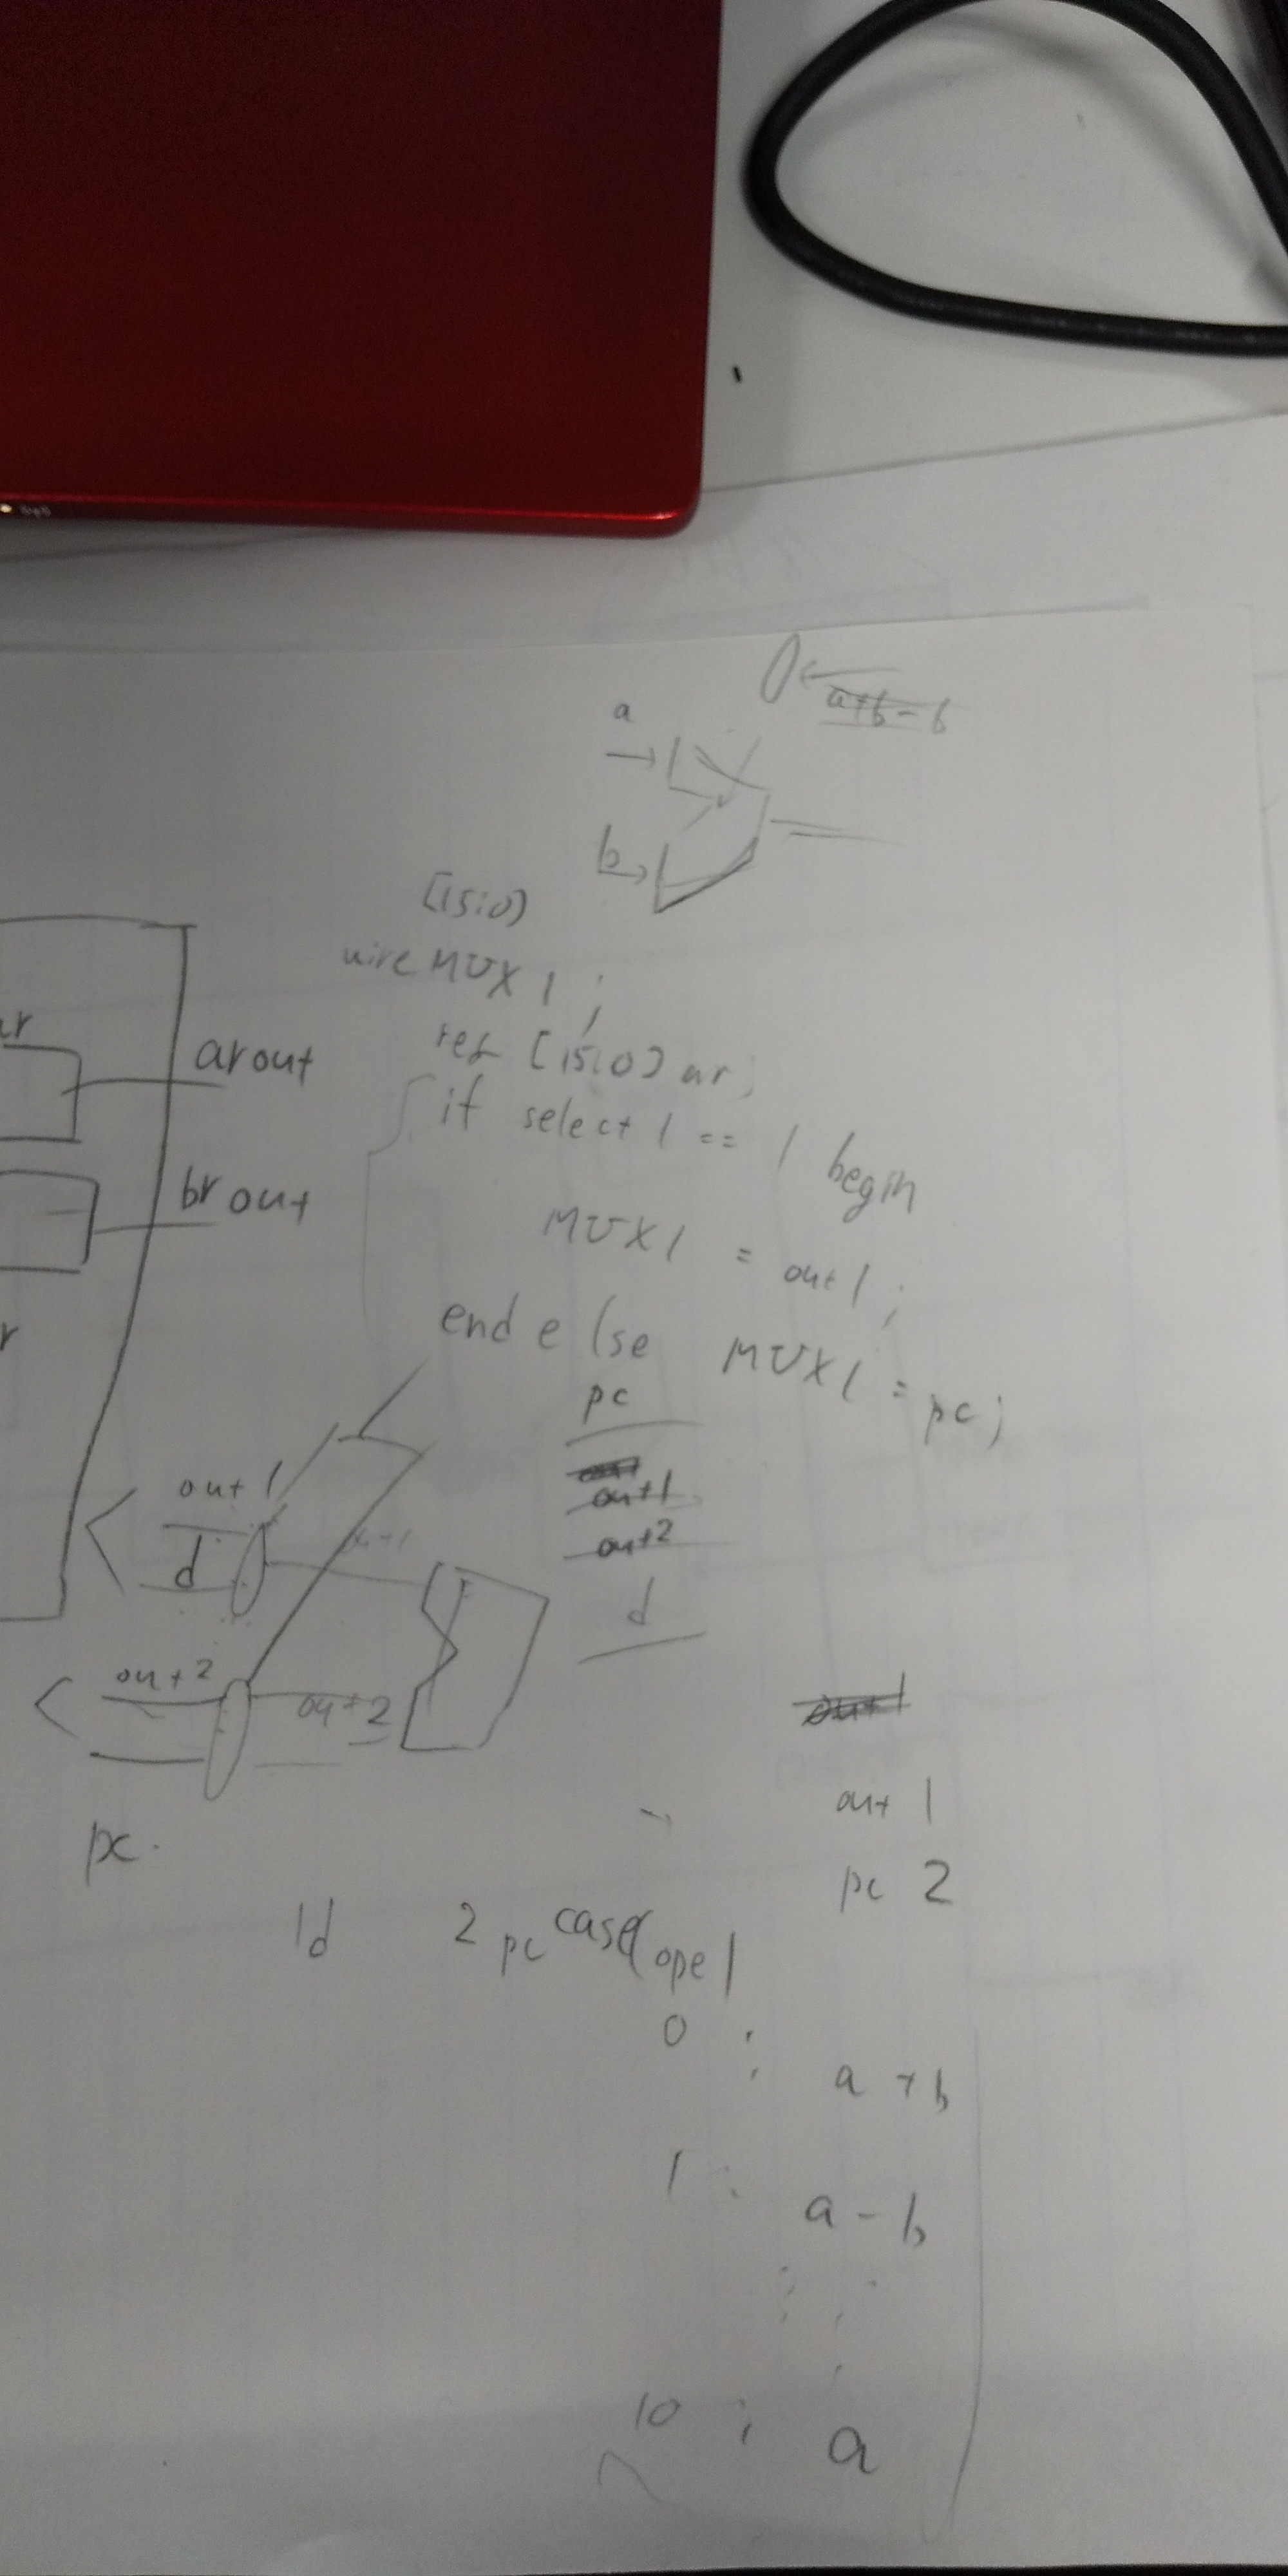 a
a+b-b
b
[15:0]
wire MUX1;
reg [15:0] ar;
if select1 == 1 begin
MUX1 = out1;
end else MUX1 = pc;
ar
arout
brout
r
pc
out1
out2
d
out1
d
out2
out2
out1
out1
pc 2
pc.
ld 2 pc case(ope1
0 : a+b
1 : a-b
10 : a